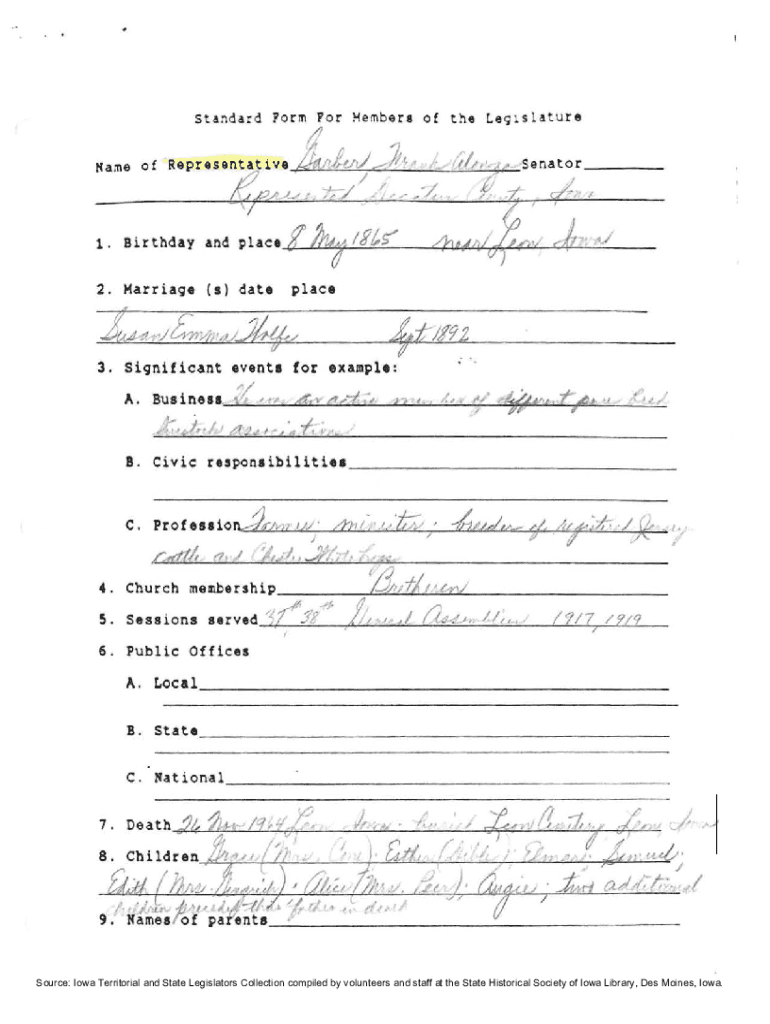 Standard Form For Members of the Legislature
Name of Representative Garber, Frank Alonzo Senator
Represented Decatur County, Iowa
1. Birthday and place 8 May 1865 near Leon, Iowa
2. Marriage (s) date place
Susan Emma Wolfe Sept 1892
3. Significant events for example:
A. Business He was an active member of different pure bred
livestock associations
B. Civic responsibilities
C. Profession Farmer; minister; breeder of registered Jersey
cattle and Chester White hogs
4. Church membership Bretheren
5. Sessions served 37th 38th General Assemblies 1917, 1919
6. Public Offices
A. Local
B. State
C. National
7. Death 26 Nov 1964 Leon Iowa - buried Leon Cemetery Leon Iowa
8. Children Grace (Mrs. ); Esther ; Elmer; Samuel;
Edith (Mrs. ); Alice (Mrs. ); Angie; two additional
children preceded their father in death
9. Names of parents
Source: Iowa Territorial and State Legislators Collection compiled by volunteers and staff at the State Historical Society of Iowa Library, Des Moines, Iowa.